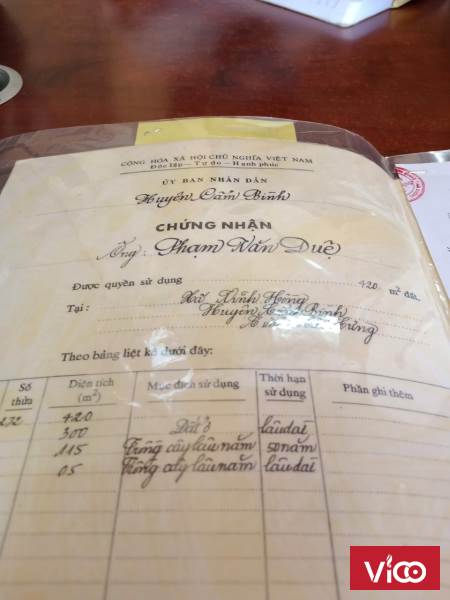 CỘNG HÒA XÃ HỘI CHỦ NGHĨA VIỆT NAM
Độc lập - Tự do - Hạnh phúc
ỦY BAN NHÂN DÂN
Huyện Cẩm Bình
CHỨNG NHẬN
Ông: Phạm Văn Duệ
Được quyền sử dụng 420 m² đất.
Tại: Xã Vĩnh Hồng
Huyện Bình
Hưng
Theo bảng liệt kê dưới đây:
Số thửa Diện tích (m²) Mục đích sử dụng Thời hạn sử dụng Phần ghi thêm
172 420
300 Đất ở lâu dài
115 Trồng cây lâu năm 50 năm
05 Trồng cây lâu năm lâu dài
ViCO